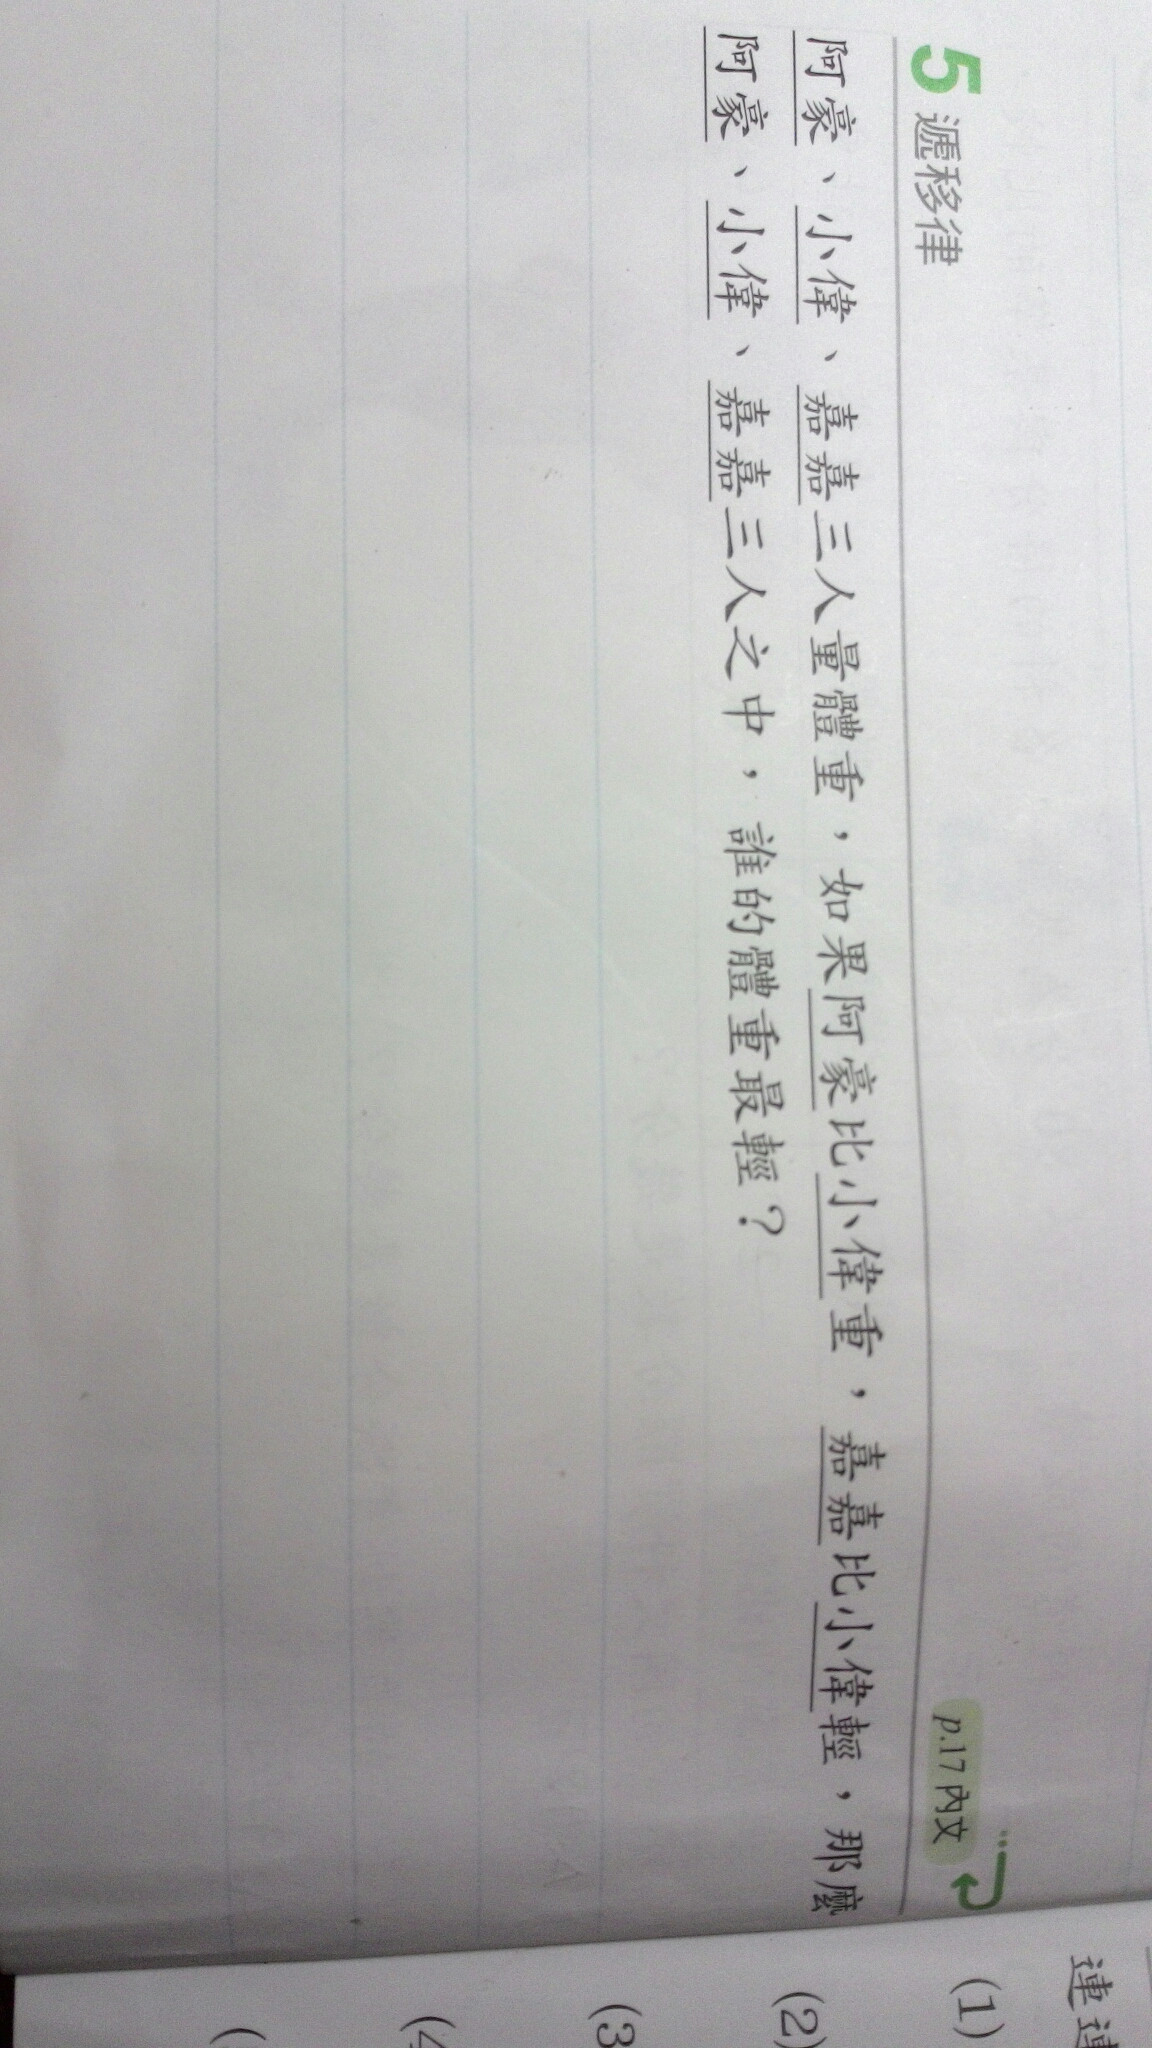 5 遞移律
p.17 內文
阿豪、小偉、嘉嘉三人量體重,如果阿豪比小偉重,嘉嘉比小偉輕,那麼
阿豪、小偉、嘉嘉三人之中,誰的體重最輕?
連連
(1)
(2)
(3
(4
(